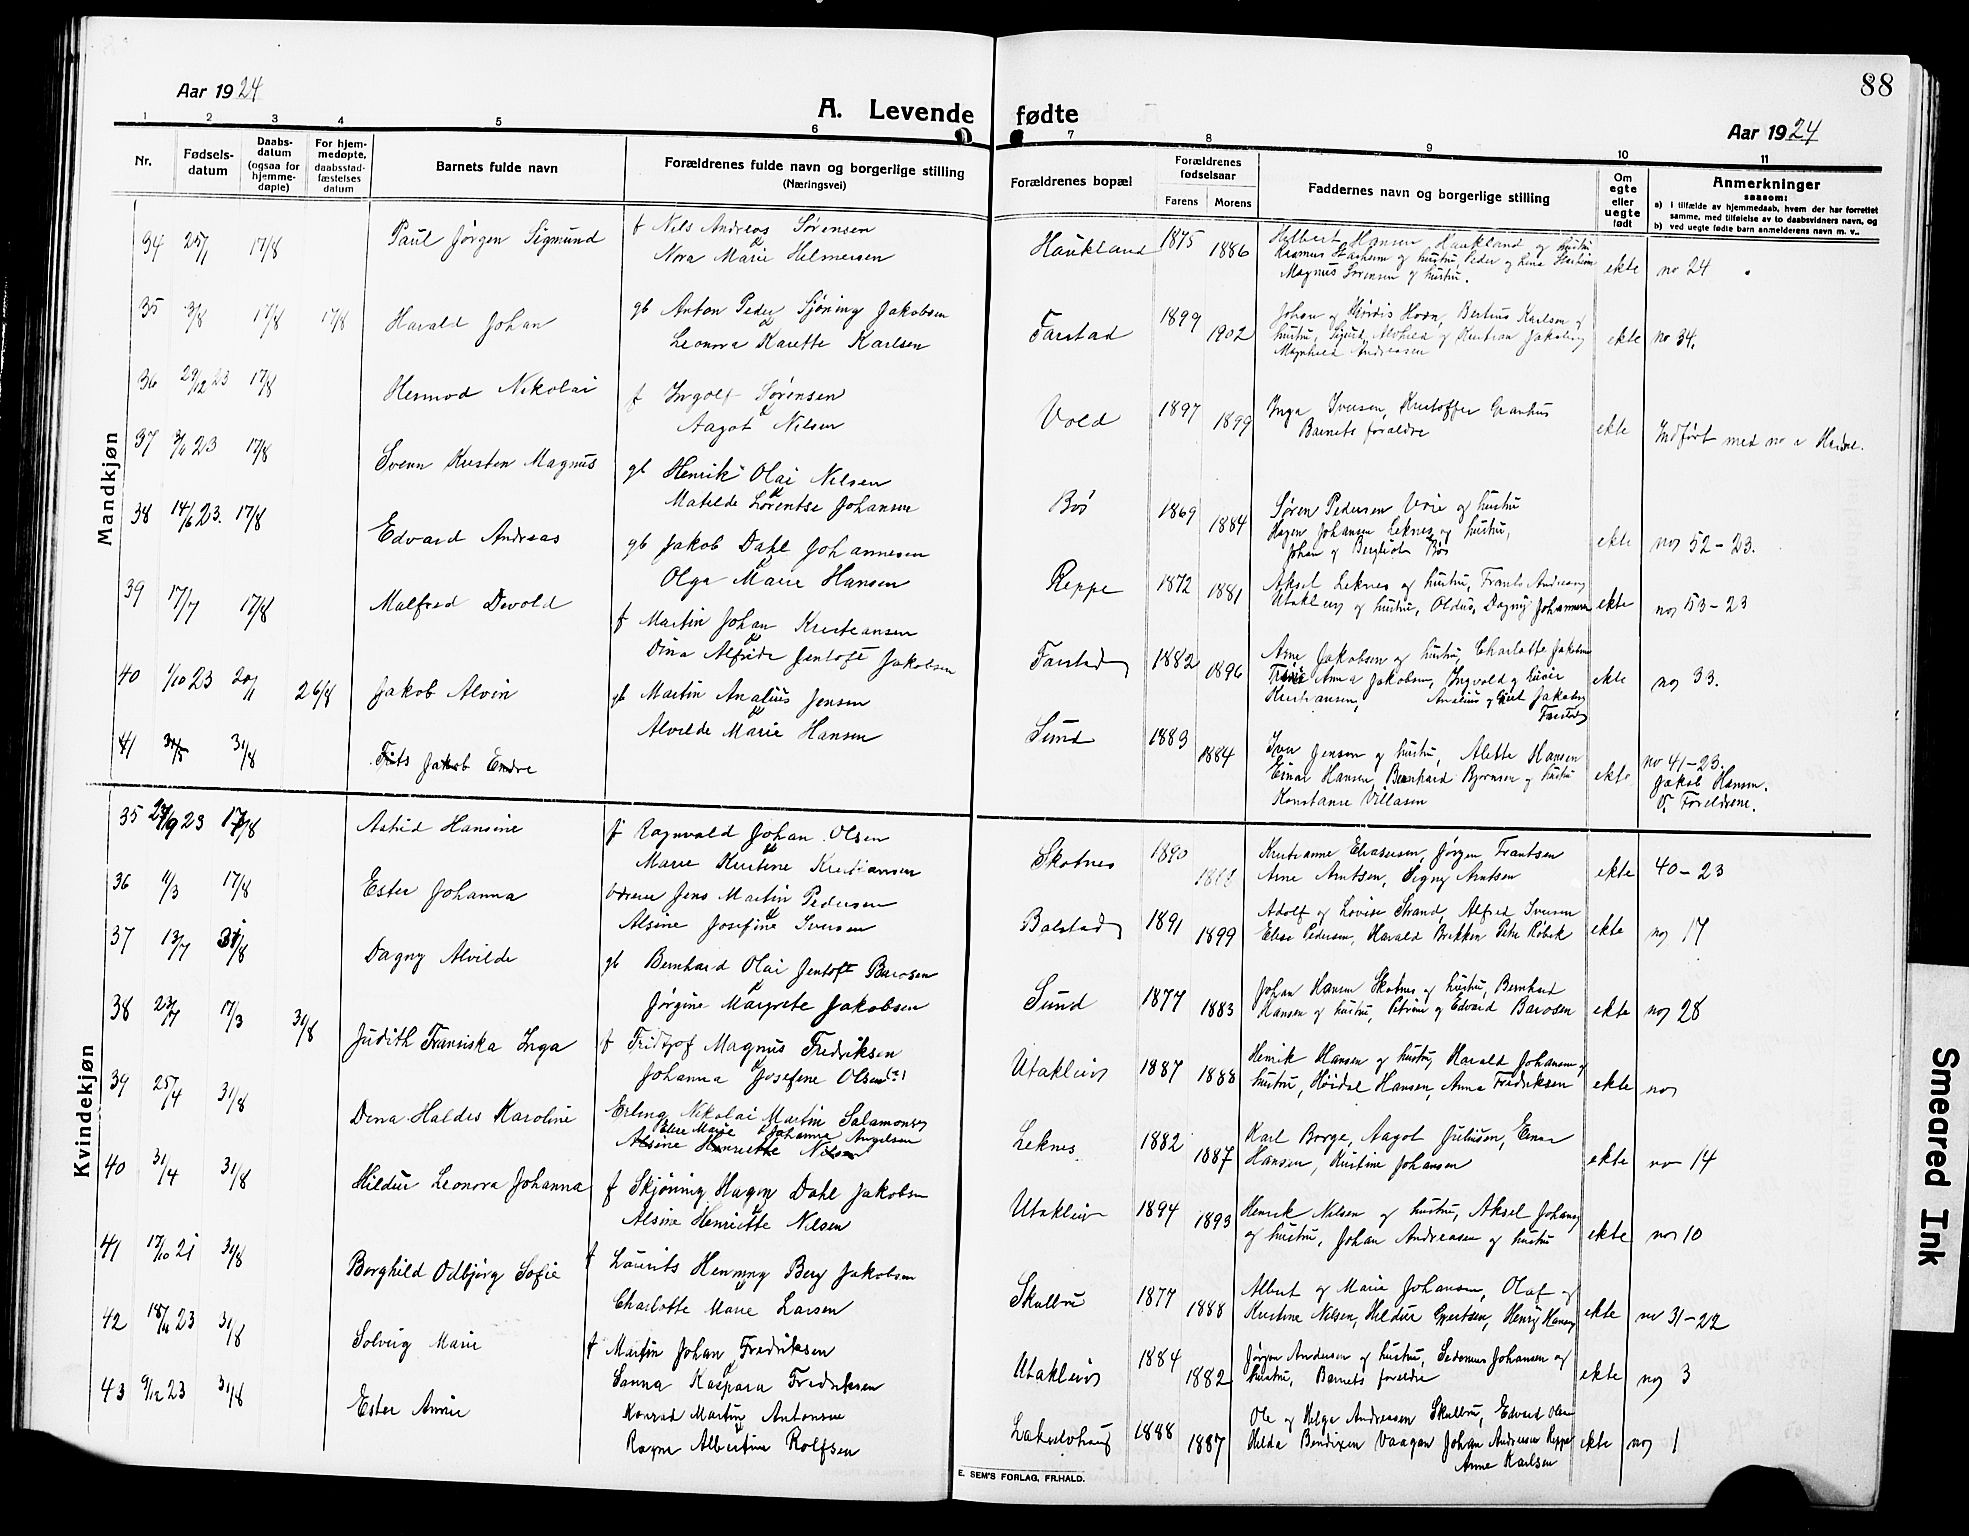 88
Aar 1924
A. Levende fødte
Aar 1924
1 2 3 4 5 6 7 8 9 10 11
Nr.
Fødsels-
datum
Daabs-
datum
(ogsaa for
hjemme-
døpte)
For hjem-
medøpte,
daabsstad-
fæstelses
datum
Barnets fulde navn
Forældrenes fulde navn og borgerlige stilling
(Næringsvei)
Forældrenes bopæl
Forældrenes
fødselsaar
Farens Morens
Faddernes navn og borgerlige stilling
Om
egte
eller
uegte
født
Anmerkninger
saasom:
a) i tilfælde av hjemmedaab, hvem der har forrettet
samme, med tilføielse av to daabsvidners navn, og
b) ved uegte fødte barn anmelderens navn m. v..
Mandkjøn
34 25/7 17/8 Paul Jørgen Sigmund f Nils Andreas Sørensen
Nora Marie Helmersen
Haukland 1875 1886
Hilbert Hansen Haukland og hustru
Rasmus Storheim og hustru Peder og Lina Storheim
Magnus Sørensen og hustru.
ekte no 24
35 3/8 17/8 17/8 Harald Johan gb Anton Peder Sjøning Jakobsen
Leonora Karette Karlsen
Farstad 1899 1902
Johan og Hjørdis Horn, Bertius Karlsen og
hustru, Sigurd, Alvhild og Kristian Jakobsen
Magnhild Andreassen
ekte no 34.
36 29/12 23 17/8 Hermod Nikolai f Ingolf Sørensen
Aagot Nilsen
Vold 1897 1899
Inga Iversen, Kristoffer Grønhus
Barnets foreldre
ekte Indført med no i Heidne.
37 23 17/8 Svenn Kristen Magnus gb Henrik Olai Nilsen
Matilde Lorentse Johansen
Bøs 1869 1884
Søren Pedersen Voie og hustru
Hagen Johansen Leknes og hustru,
Johan og Bergliot Bøs
ekte no 52-23.
38 14/6 23. 17/8 Edvard Andreas gb Jakob Dahl Johannesen
Olga Marie Hansen
Reppe 1872 1881
Aksel Leknes og hustru, Frants Andreasen
Utakleiv og hustru, Oldus, Dagny Johannesen
ekte no 53-23
39 17/7 17/8 Malfred Devold f Martin Johan Kristiansen
Dina Alfride Jentoft Jakobsen
Farstad 1882 1896
Arne Jakobsen og hustru, Charlotte Jakobsen
Anna Jakobsen, Ingvald og Luise
Kristiansen, Analius og Jakobsen
Farstad
ekte no 33.
40 1/10 23 20/11 26/8 Jakob Alvin gb Martin Analius Jensen
Alvilde Marie Hansen
Sund 1883 1884
Iver Jensen og hustru, Alette Hansen
Einar Hansen, Bernhard Bjørnsen og hustru
Konstanse Villasen
ekte no 41-23.
Jakob Hansen.
v. Foreldrene.
41 31/5 31/8 Frits Jakob Endre
Kvindekjøn
35 29/9 23 17/8 Astrid Hansine f Ragnvald Johan Olsen
Marie Kristine Kristiansen
Skotnes 1890
Kristianne Eliasesen, Jørgen Frantsen
Arne Arntsen, Signy Arntsen
ekte 40-23
36 11/3 17/8 Ester Johanna Jens Martin Pedersen
Alsine Josefine Iversen
Balstad 1891 1899
Adolf og Lovise Strand, Alfred Iversen
Elise Pedersen, Harald Brekken Petre Robek
ekte no 17
37 13/7 31/8 Dagny Alvilde gb Bernhard Olai Jentoft Barosen
Jørgine Margrete Jakobsen
Sund 1877 1883
Johan Hansen Skotnes og hustru, Bernhard
Hansen og hustru, Petrine og Edvard Barosen
ekte no 28
38 23/7 17/3 31/8 Judith Franciska Inga f Fridtjof Magnus Fredriksen
Johanna Josefine Olsen
Utakleiv 1887 1888
Henrik Hansen og hustru, Harald Johansen og
hustru, Høidal Hansen, Anna Fredriksen
ekte no
39 25/4 31/8 Dina Haldis Karoline Erling Nikolai Martin Salamonsen
Elise Marie Johanne Angelsen
Alsine Henriette Nilsen
Leknes 1882 1887
Karl Borge, Aagot Juliusen, Einar
Hansen, Kristine Johansen
ekte no 14
40 31/4 31/8 Hildur Leonora Johanna f Skjøning Hagen Dahl Jakobsen
Alsine Henriette Nilsen
Utakleiv 1894 1893
Henrik Nilsen og hustru, Aksel Johansen
og hustru, Johan Andreasen og hustru
ekte no 10
41 17/10 21 31/8 Borghild Odbjørg Sofie f Laurits Henning Berg Jakobsen
Charlotte Marie Larsen
Skulbru 1877 1888
Albert og Marie Johansen, Olaf og
Kristine Nilsen, Hildur Gjertsen, Henry Hansen
ekte no 31-22
42 23 31/8 Solveig Marie f Martin Johan Fredriksen
Sanna Kaspara Fredriksen
Utakleiv 1884 1882
Jørgen Andersen og hustru, Sedenius Johansen og
hustru, Barnets foreldre
ekte no 3
43 9/12 23 31/8 Ester Annie Konrad Martin Antonsen
Ragna Albertine Rolfsen
1888 1887
Ole og Helga Andreassen Skulbru, Edvard Olsen
Hilda Bendixen Vaagan Johan Andersen Reppe
Anna Karlsen
ekte no 1
E. SEM'S FORLAG, FR.HALD.
Smeared Ink